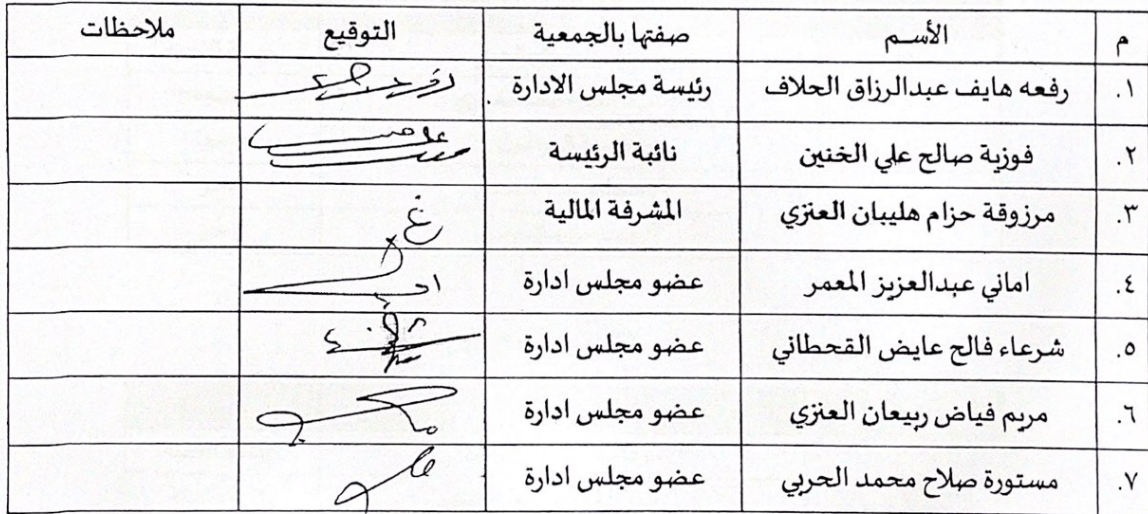 م الأسـم صفتها بالجمعية التوقيع ملاحظات
١. رفعه هايف عبدالرزاق الحلاف رئيسة مجلس الادارة
٢. فوزية صالح علي الخنين نائبة الرئيسة
٣. مرزوقة حزام هليبان العنزي المشرفة المالية
٤. اماني عبدالعزيز المعمر عضو مجلس ادارة
٥. شرعاء فالح عايض القحطاني عضو مجلس ادارة
٦. مريم فياض ربيعان العنزي عضو مجلس ادارة
٧. مستورة صلاح محمد الحربي عضو مجلس ادارة